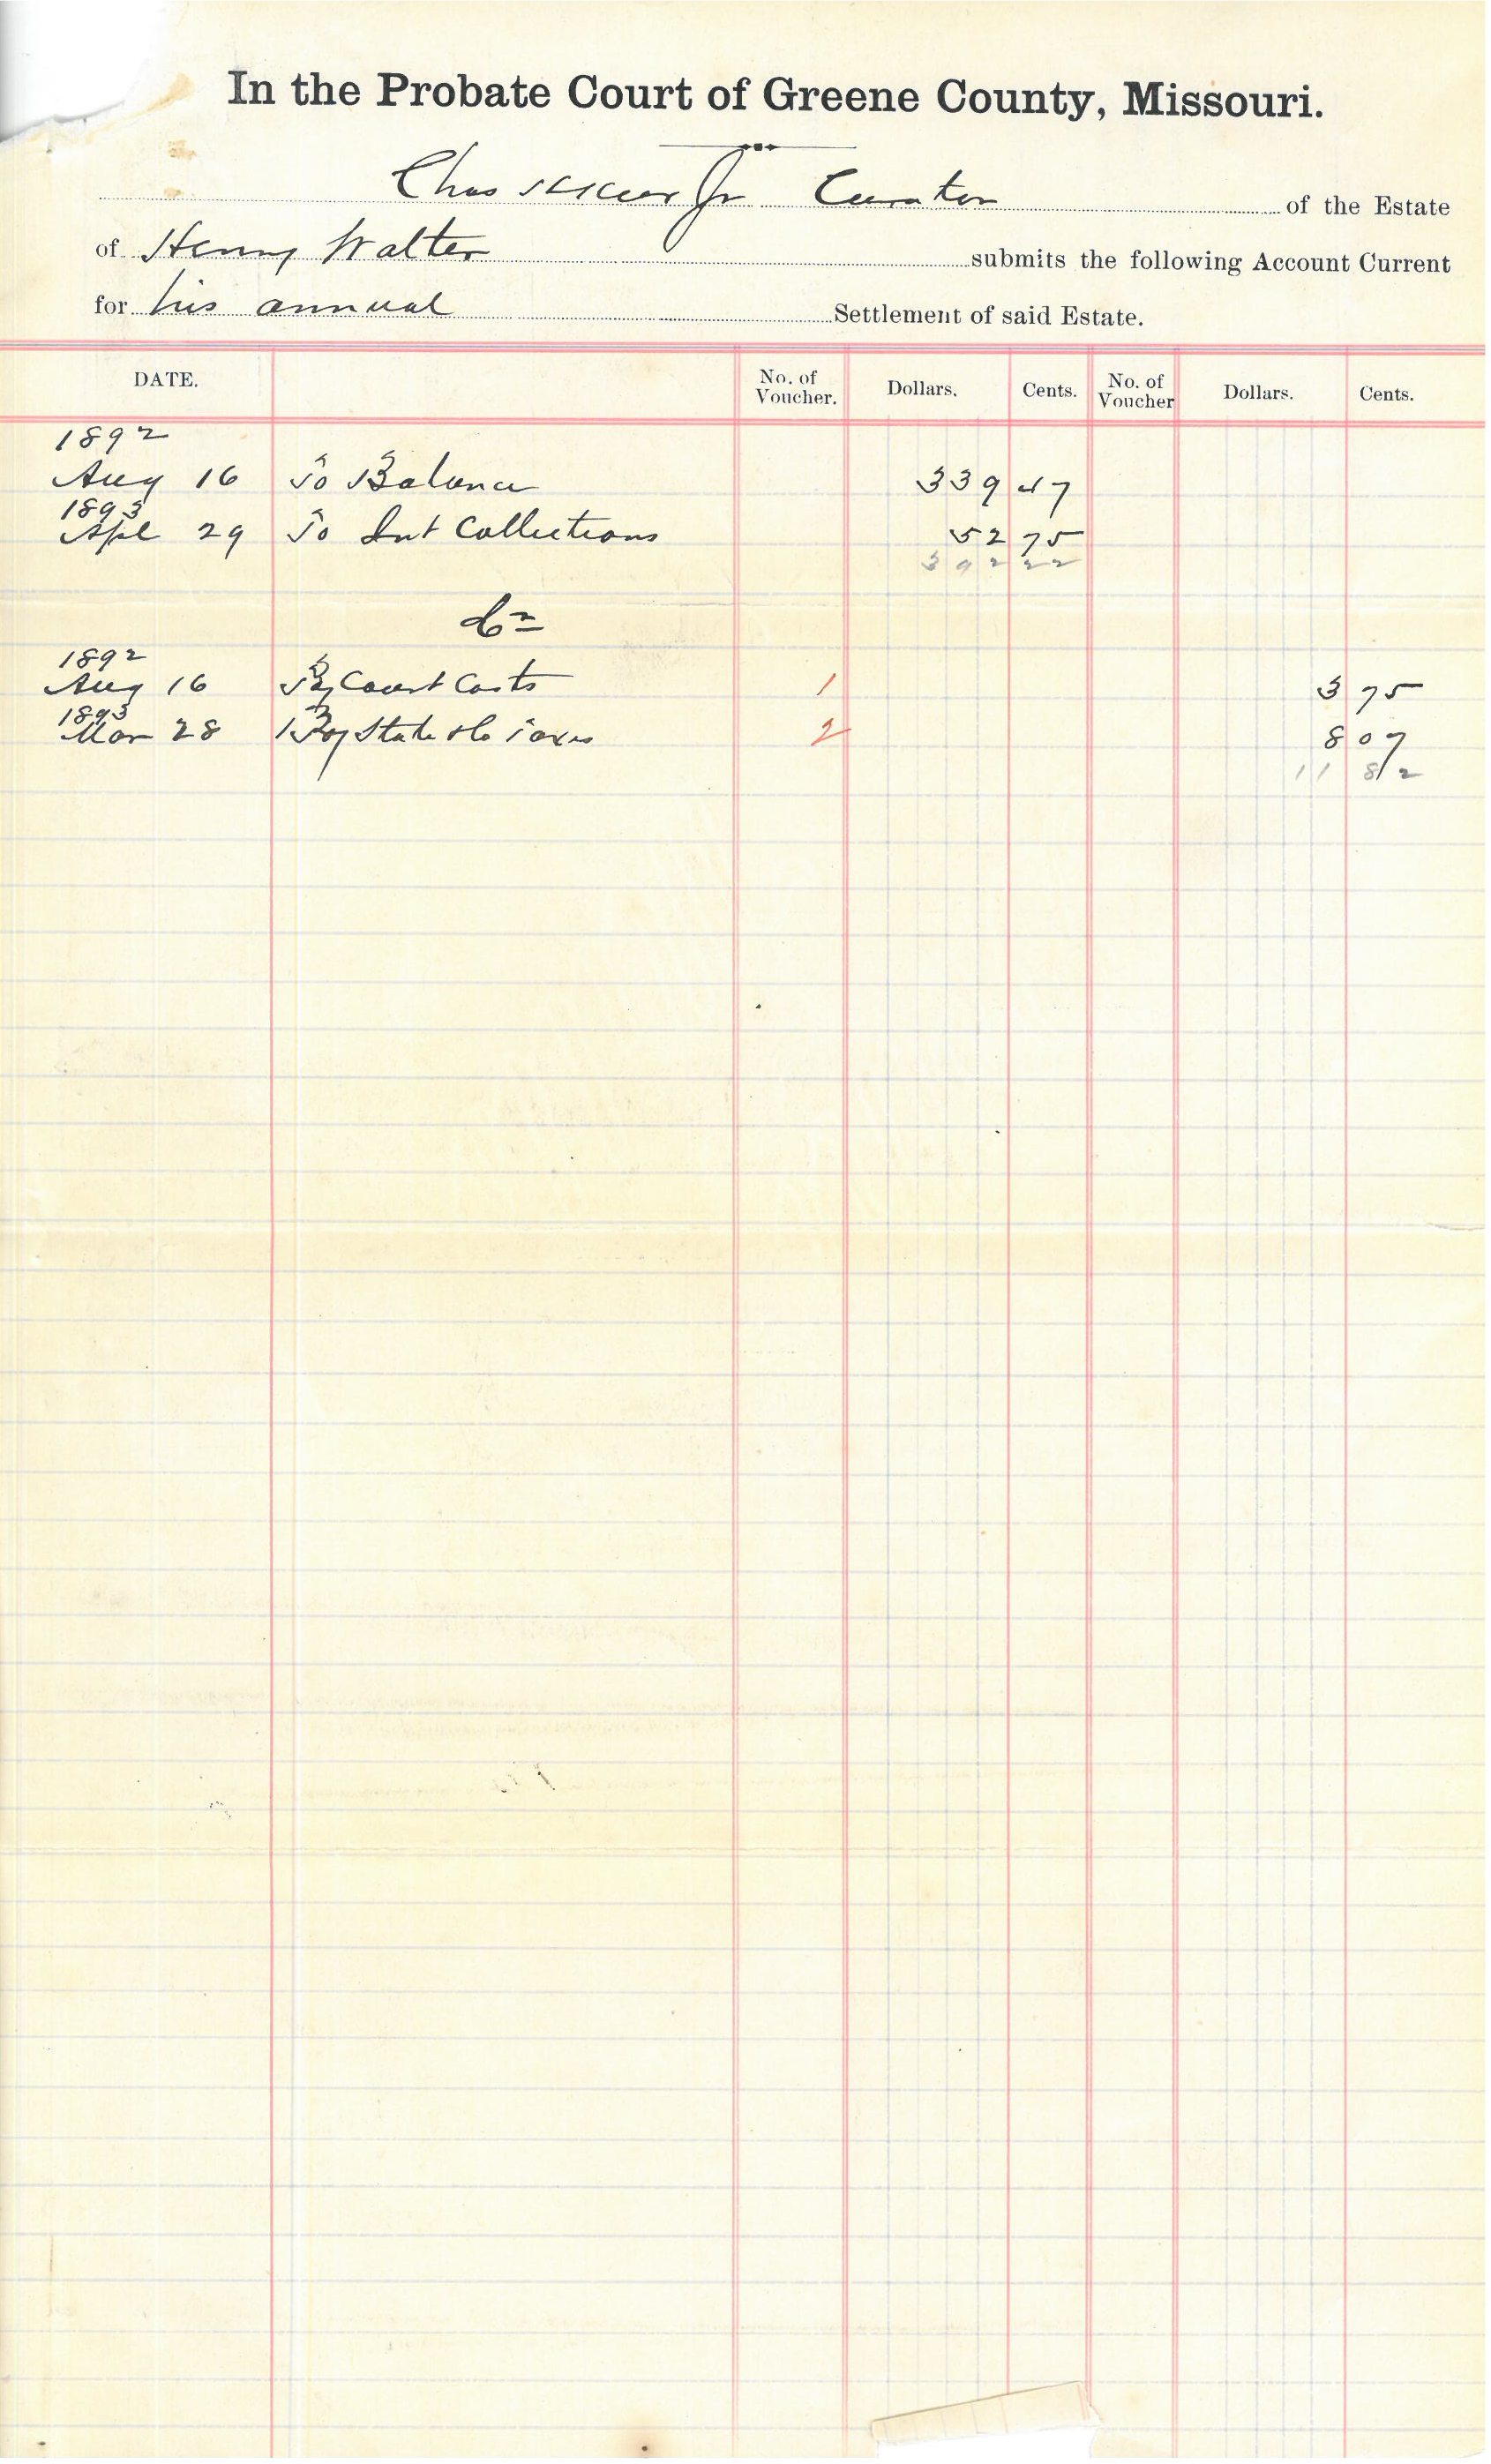 In the Probate Court of Greene County, Missouri.
Chas Jr Curator of the Estate
of Henry Walter submits the following Account Current
for his annual Settlement of said Estate.
DATE. No. of Voucher. Dollars. Cents. No. of Voucher Dollars. Cents.
1892
Aug 16 To Balance 339 47
1893
Apl 29 To Int Collections 52 75
392 22
Cr
1892
Aug 16 By Court Costs 1 3 75
1893
Mar 28 By State & Co Taxes 2 8 07
11 82